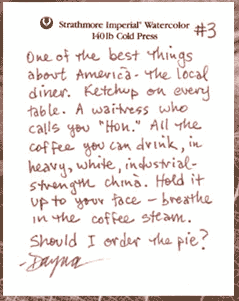 Strathmore Imperial® Watercolor
140lb Cold Press
#3
One of the best things
about America - the local
diner. Ketchup on every
table. A waitress who
calls you "Hon." All the
coffee you can drink, in
heavy, white, industrial-
strength china. Hold it
up to your face - breathe
in the coffee steam.
Should I order the pie?
-Dayna